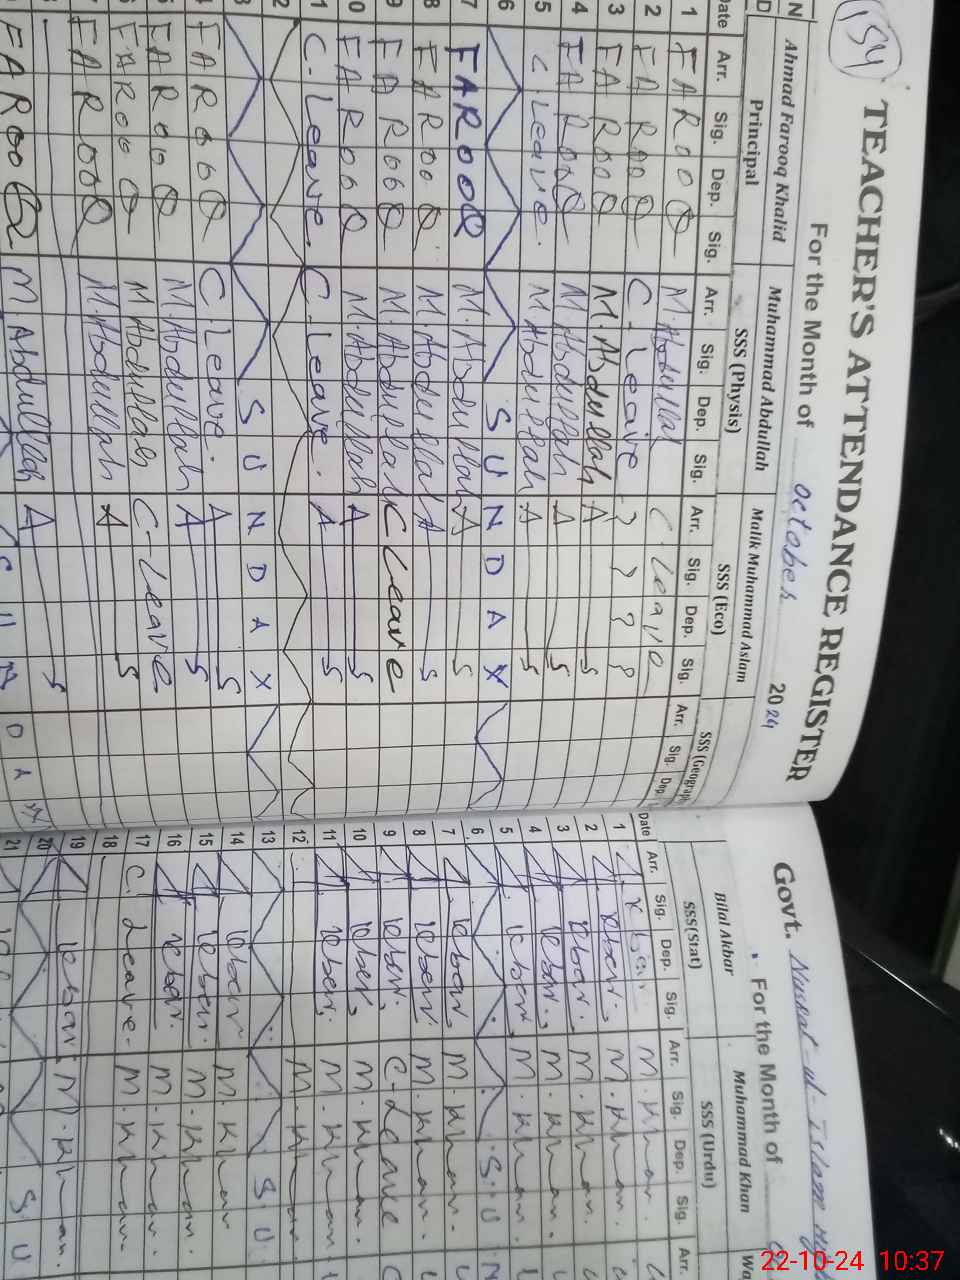 154
TEACHER'S ATTENDANCE REGISTER
For the Month of October 2024
Ahmad Farooq Khalid Muhammad Abdullah Malik Muhammad Aslam
Principal SSS (Physis) SSS (Eco) SSS (Geograp
Date Arr. Sig. Dep. Sig. Arr. Sig. Dep. Sig. Arr. Sig. Dep. Sig. Arr. Sig. Dep.
1 FAROOQ M. Abdullah C. Leave
2 FAROOQ C. Leave ? ? ? ?
3 FAROOQ M. Abdullah A S
4 FAROOQ M. Abdullah A S
5 C. Leave. M. Abdullah A S
6 SUNDAY
7 FAROOQ M. Abdullah A S
8 FAROOQ M. Abdullah A S
9 FAROOQ M. Abdullah C Leave
10 FAROOQ M. Abdullah A S
11 C. Leave. C. Leave. A S
12
3 SUNDAY
FAROOQ C. Leave. A S
FAROOQ M. Abdullah A S
FAROOQ M Abdullah C-Leave
FAROOQ M. Abdullah A S
FAROOQ M. Abdullah A S
Govt. Nusrat-ul-Islam
For the Month of
Bilal Akbar Muhammad Khan Wa
SSS(Stat) SSS (Urdu)
Date Arr. Sig. Dep. Sig. Arr. Sig. Dep. Sig. Arr.
1 M. Khan.
2 M. Khan.
3 M. Khan.
4 M. Khan.
5 M. Khan.
6 S U N
7 M. Khan.
8 M. Khan.
9 C-Leave
10 M. Khan.
11 M. Khan
12 M. Khan.
13 S U
14 M. Khan
15 M. Khan.
16 M. Khan.
17 C. Leave. M. Khan.
18
19 M. Khan.
20 S U
21
22-10-24 10:37